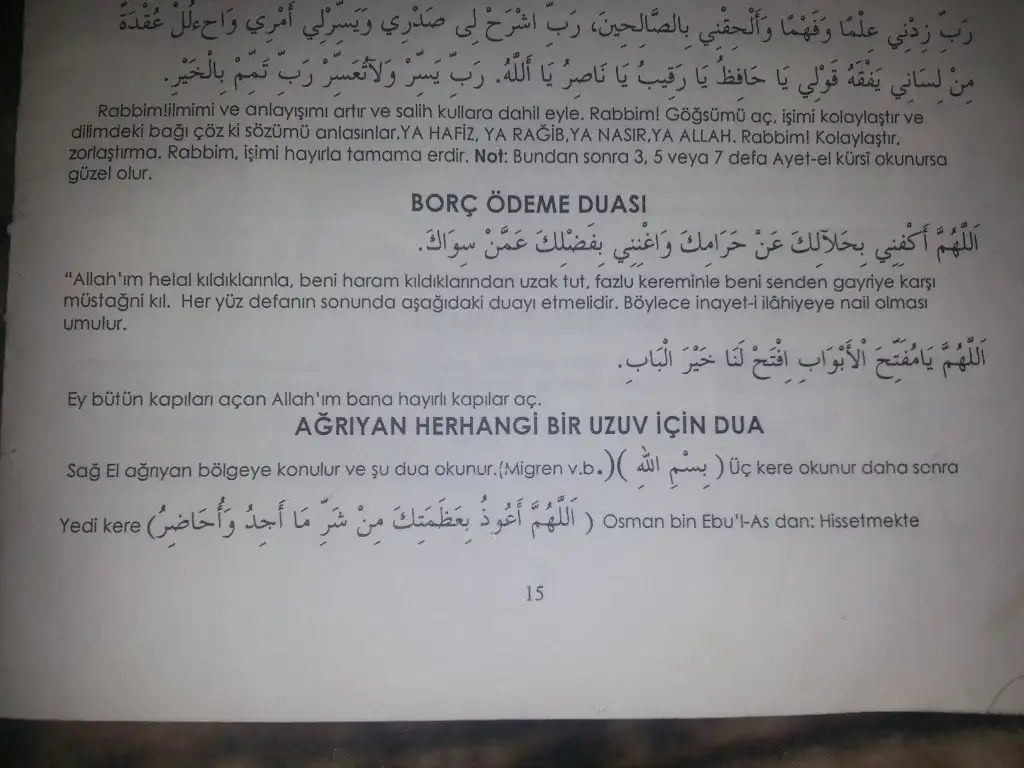 رَبِّ زِدْنِي عِلْمًا وَفَهْمًا وَأَلْحِقْنِي بِالصَّالِحِينَ، رَبِّ اشْرَحْ لِى صَدْرِي وَيَسِّرْلِي أَمْرِي وَاحْلُلْ عُقْدَةً
مِنْ لِسَانِي يَفْقَهُ قَوْلِي يَا حَافِظُ يَا رَقِيبُ يَا نَاصِرُ يَا أَللَّهُ. رَبِّ يَسِّرْ وَلَاتُعَسِّرْ رَبِّ تَمِّمْ بِالْخَيْرِ.
Rabbim!ilmimi ve anlayışımı artır ve salih kullara dahil eyle. Rabbim! Göğsümü aç, işimi kolaylaştır ve
dilimdeki bağı çöz ki sözümü anlasınlar.YA HAFİZ, YA RAĞİB,YA NASIR,YA ALLAH. Rabbim! Kolaylaştır,
zorlaştırma. Rabbim, işimi hayırla tamama erdir. Not: Bundan sonra 3, 5 veya 7 defa Ayet-el kürsi okunursa
güzel olur.
BORÇ ÖDEME DUASI
اَللَّهُمَّ أَكْفِنِي بِحَلَالِكَ عَنْ حَرَامِكَ وَاغْنِنِي بِفَضْلِكَ عَمَّنْ سِوَاكَ.
“Allah'ım helal kıldıklarınla, beni haram kıldıklarından uzak tut, fazlu kereminle beni senden gayriye karşı
müstağni kıl. Her yüz defanın sonunda aşağıdaki duayı etmelidir. Böylece inayet-i ilâhiyeye nail olması
umulur.
اَللَّهُمَّ يَامُفَتِّحَ الْأَبْوَابِ اِفْتَحْ لَنَا خَيْرَ الْبَابِ.
Ey bütün kapıları açan Allah'ım bana hayırlı kapılar aç.
AĞRIYAN HERHANGİ BİR UZUV İÇİN DUA
Sağ El ağrıyan bölgeye konulur ve şu dua okunur.(Migren v.b.)( بِسْمِ اللهِ ) Üç kere okunur daha sonra
Yedi kere (اَللَّهُمَّ أَعُوذُ بِعَظَمَتِكَ مِنْ شَرِّ مَا أَجِدُ وَأُحَاضِرُ ) Osman bin Ebu'l-As dan: Hissetmekte
15